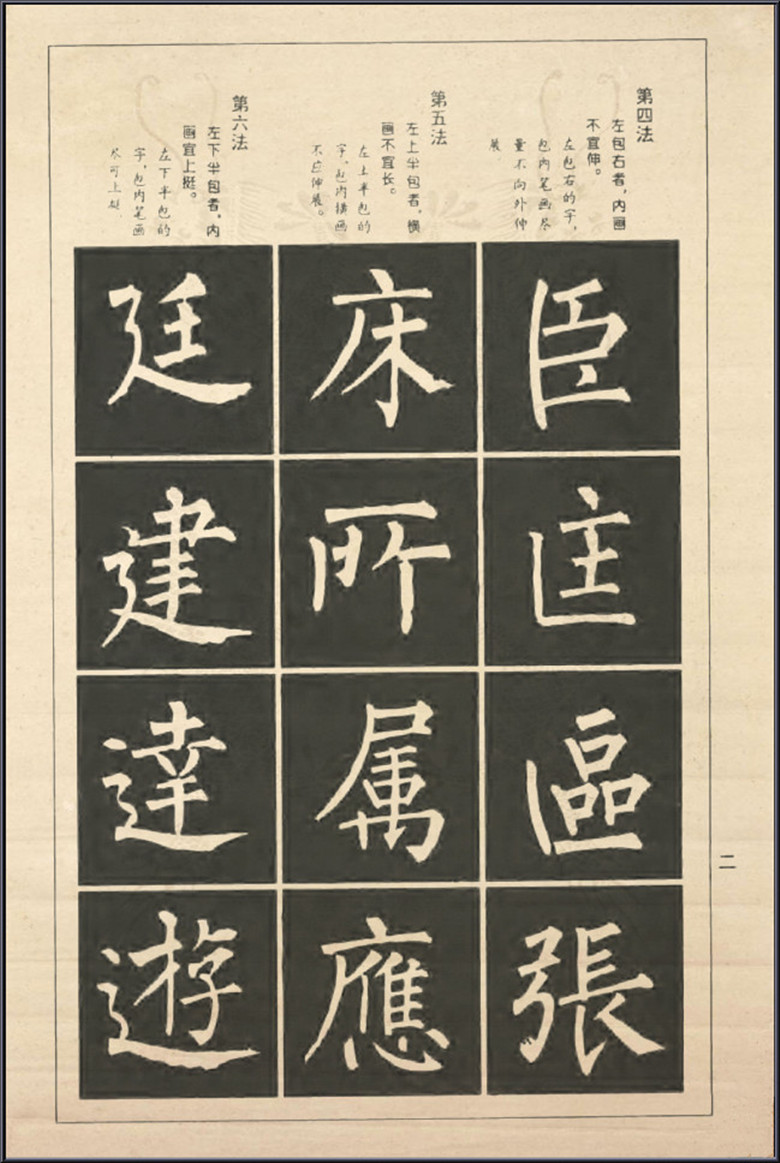 第四法
左包右者，内画
不宜伸。
左包右的字，
包内笔画尽
量不向外伸
展
臣
匡
區
張
第五法
左上半包者，横
画不宜长。
左上半包的
字，包内横画
不应伸展。
床
所
属
應
第六法
左下半包者，内
画宜上挺。
左下半包的
字，包内笔画
尽可上挺.
廷
建
達
遊
二